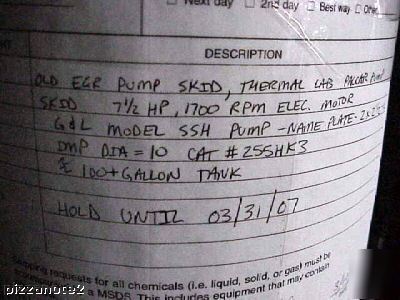 Next day 2nd day Best way Other
DESCRIPTION
OLD EGR PUMP SKID, THERMAL LAB PACCAR PUMP
SKID 7 1/2 HP, 1700 RPM ELEC. MOTOR
G&L MODEL SSH PUMP - NAME PLATE - 2x2
IMP DIA = 10 CAT # 25SHK3
& 100+ GALLON TANK
HOLD UNTIL 03/31/07
Shipping requests for all chemicals (i.e. liquid, solid, or gas) must be
a MSDS. This includes equipment that may contain
pizzanote2